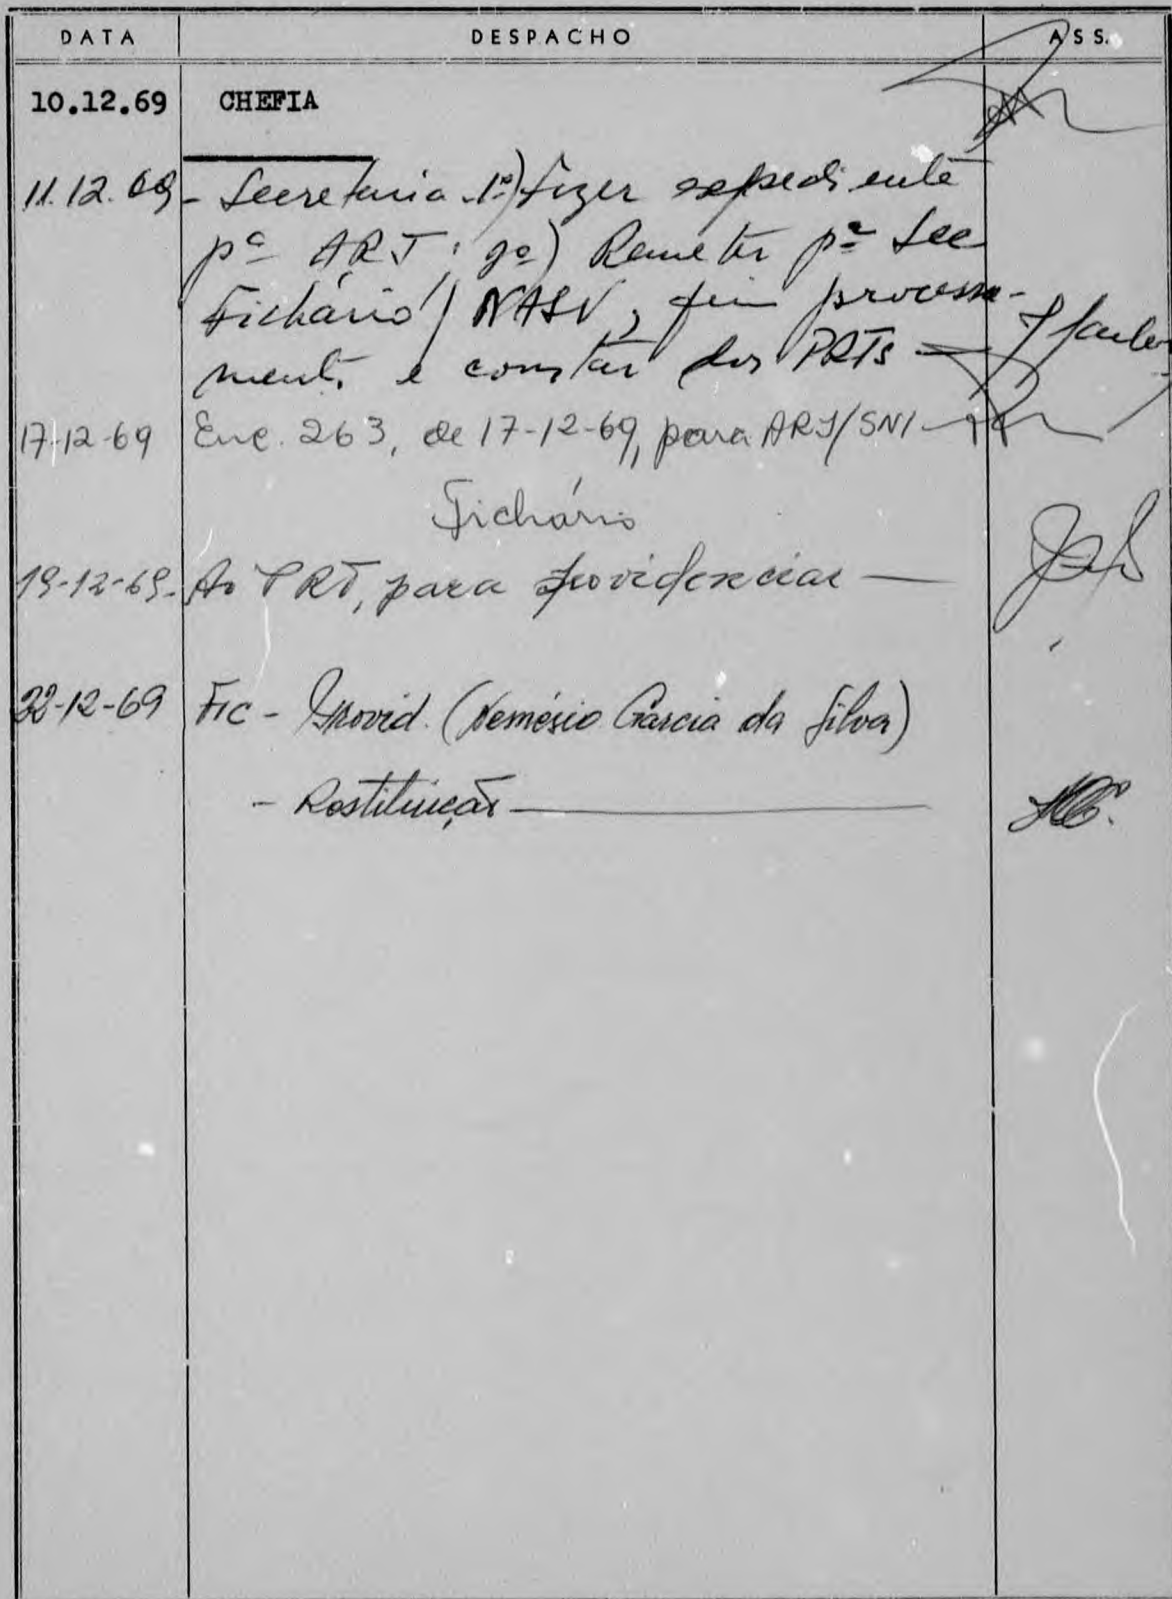 DATA DESPACHO ASS.
10.12.69 CHEFIA
11.12.69 - Secretaria 1º) fizer expediente
pª ARJ; 2º) Remeter pª Sec
Fichário / NASV, fim processa-
mento e constar dos PRTs
17-12-69 Enc. 263, de 17-12-69, para ARJ/SNI
Fichário
19-12-69. Ao PRT, para providenciar
22-12-69 Fic - Provid. (Nemésio Garcia da Silva)
- Restituição